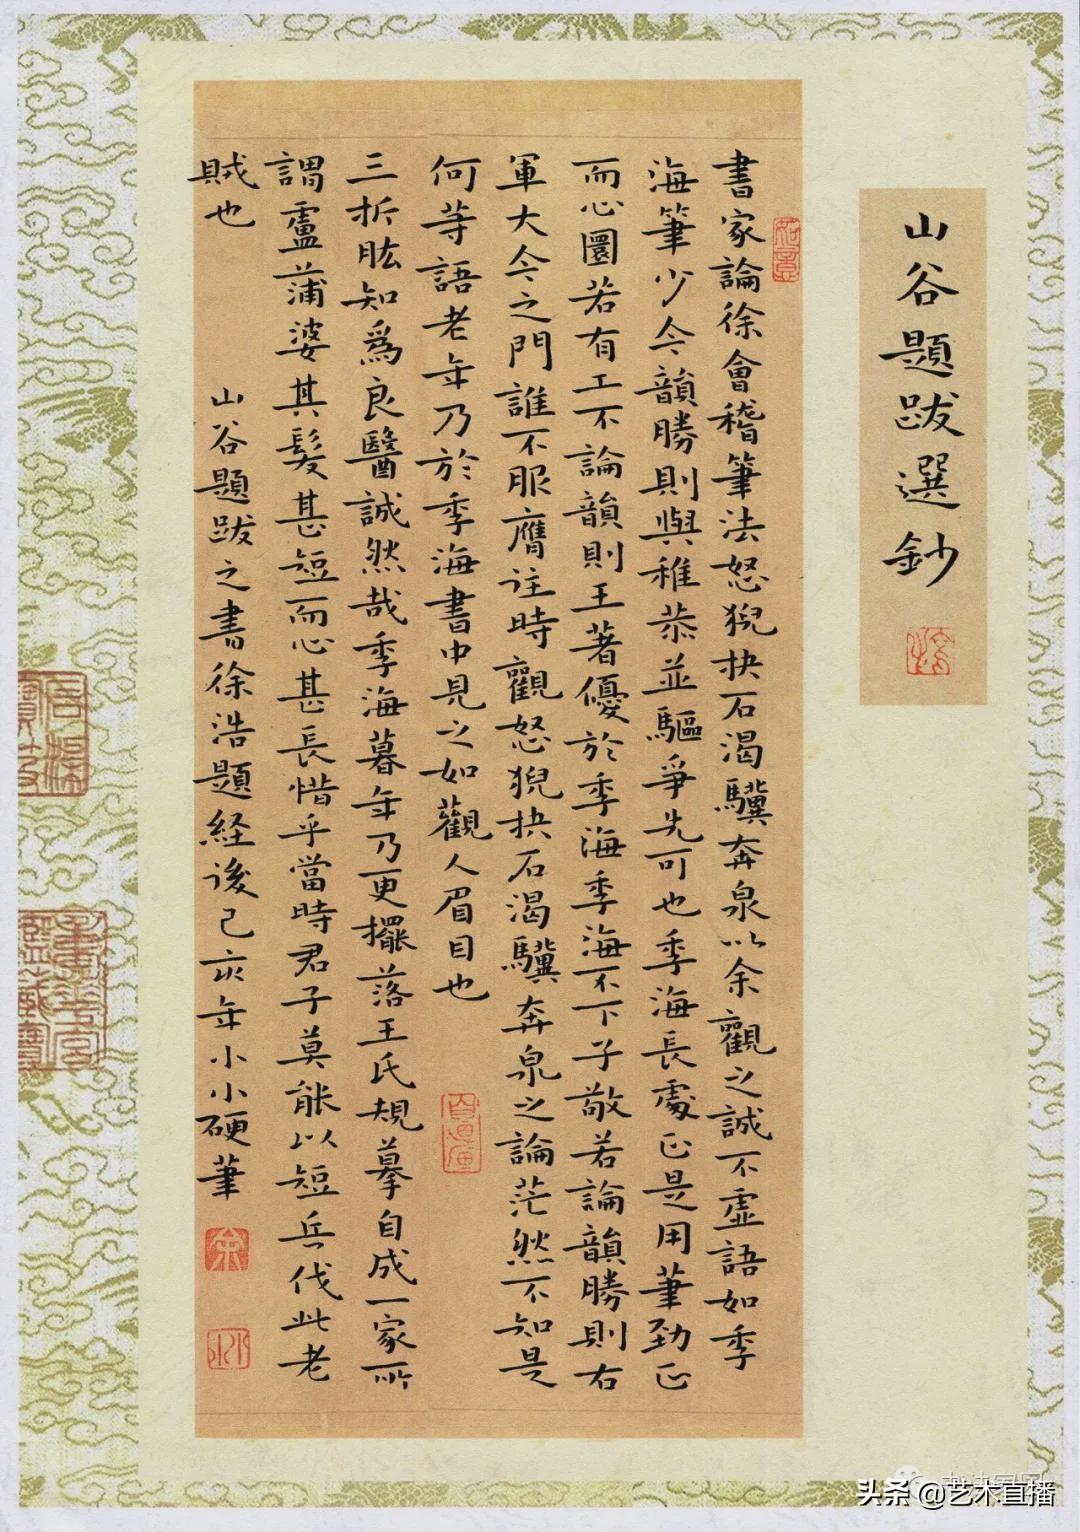 山谷題跋選鈔
書家論徐會稽筆法怒猊抉石渴驥奔泉以余觀之誠不虛語如季
海筆少令韻勝則與稚恭並驅爭先可也季海長處正是用筆勁正
而心圓若有工不論韻則王著優於季海季海不下子敬若論韻勝則右
軍大令之門誰不服膺往時觀怒猊抉石渴驥奔泉之論茫然不知是
何等語老年乃於季海書中見之如觀人眉目也
三折肱知為良醫誠然哉季海暮年乃更擺落王氏規摹自成一家所
謂盧蒲嫳其髮甚短而心甚長惜乎當時君子莫能以短兵伐此老
賊也
山谷題跋之書徐浩題経後己亥年小小硬筆
如意
余
小
头条 @艺术直播